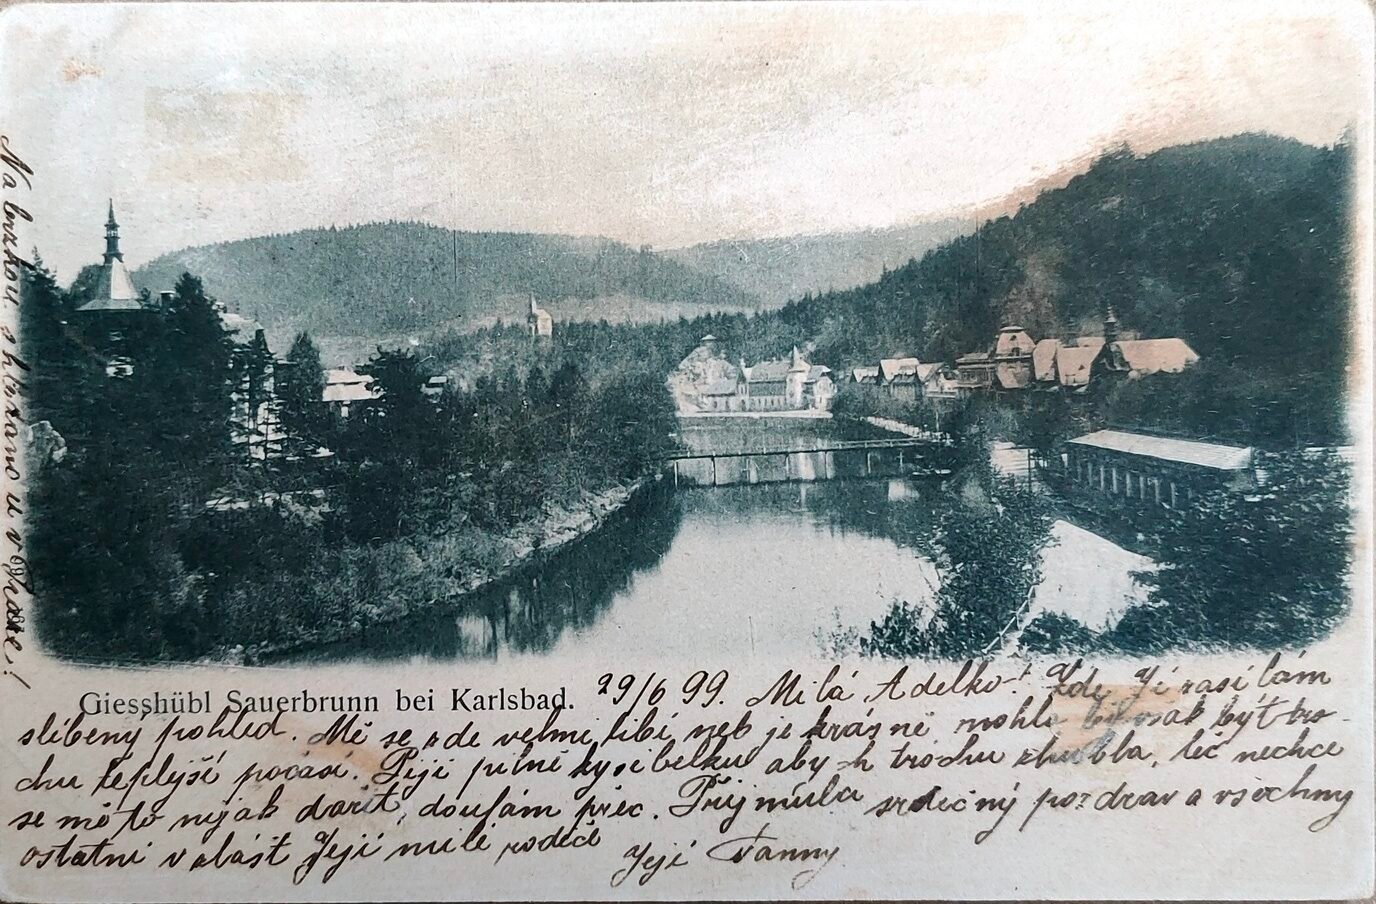 Giesshübl Sauerbrunn bei Karlsbad.
29/6 99. Milá Adelko! Zde Jí zasílám
slíbený pohled. Mě se zde velmi líbí neb je krásně mohlo by však být tro-
chu teplejší počasí. Piji pilně kyselku abych trochu zhubla, leč nechce
se mě to nijak dařit, doufám přec. Přijmula srdečný pozdrav a všechny
ostatní v zlášt Její milé rodiče Její Fanny
Na brzkou shledanou v Praze!